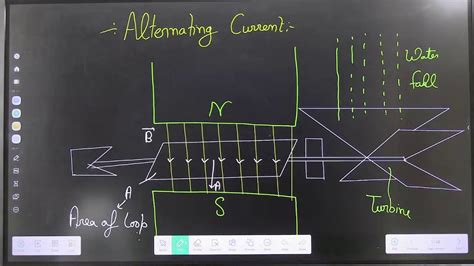 -: Alternating Current:-
Water
fall
N
B
A
A
S
Area of Loop
Turbine